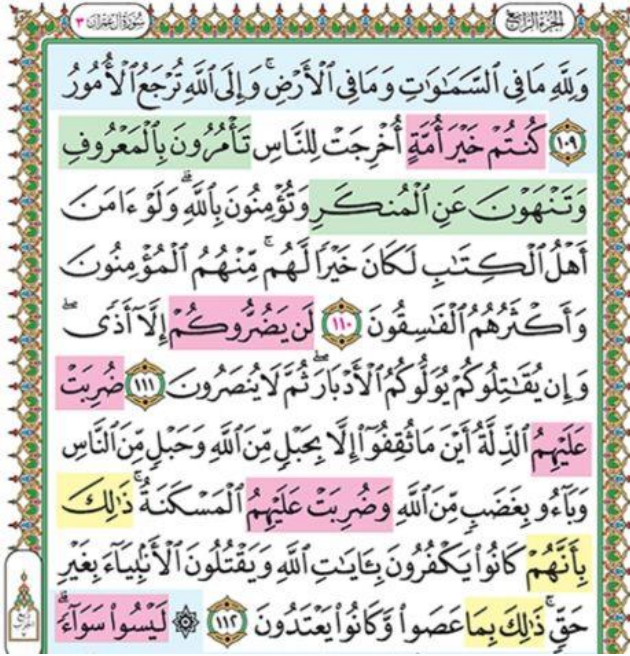 الجزء الرابع
سورة آل عمران ٣
وَلِلَّهِ مَا فِي ٱلسَّمَٰوَٰتِ وَمَا فِي ٱلْأَرْضِ ۚ وَإِلَى ٱللَّهِ تُرْجَعُ ٱلْأُمُورُ
١٠٩ كُنتُمْ خَيْرَ أُمَّةٍ أُخْرِجَتْ لِلنَّاسِ تَأْمُرُونَ بِٱلْمَعْرُوفِ
وَتَنْهَوْنَ عَنِ ٱلْمُنكَرِ وَتُؤْمِنُونَ بِٱللَّهِ ۗ وَلَوْ ءَامَنَ
أَهْلُ ٱلْكِتَٰبِ لَكَانَ خَيْرًا لَّهُم ۚ مِّنْهُمُ ٱلْمُؤْمِنُونَ
وَأَكْثَرُهُمُ ٱلْفَٰسِقُونَ ١١٠ لَن يَضُرُّوكُمْ إِلَّآ أَذًى ۖ
وَإِن يُقَٰتِلُوكُمْ يُوَلُّوكُمُ ٱلْأَدْبَارَ ۖ ثُمَّ لَا يُنصَرُونَ ١١١ ضُرِبَتْ
عَلَيْهِمُ ٱلذِّلَّةُ أَيْنَ مَا ثُقِفُوٓا۟ إِلَّا بِحَبْلٍ مِّنَ ٱللَّهِ وَحَبْلٍ مِّنَ ٱلنَّاسِ
وَبَآءُو بِغَضَبٍ مِّنَ ٱللَّهِ وَضُرِبَتْ عَلَيْهِمُ ٱلْمَسْكَنَةُ ۚ ذَٰلِكَ
بِأَنَّهُمْ كَانُوا۟ يَكْفُرُونَ بِـَٔايَٰتِ ٱللَّهِ وَيَقْتُلُونَ ٱلْأَنۢبِيَآءَ بِغَيْرِ
حَقٍّ ۚ ذَٰلِكَ بِمَا عَصَوا۟ وَّكَانُوا۟ يَعْتَدُونَ ١١٢ ۞ لَيْسُوا۟ سَوَآءً ۗ